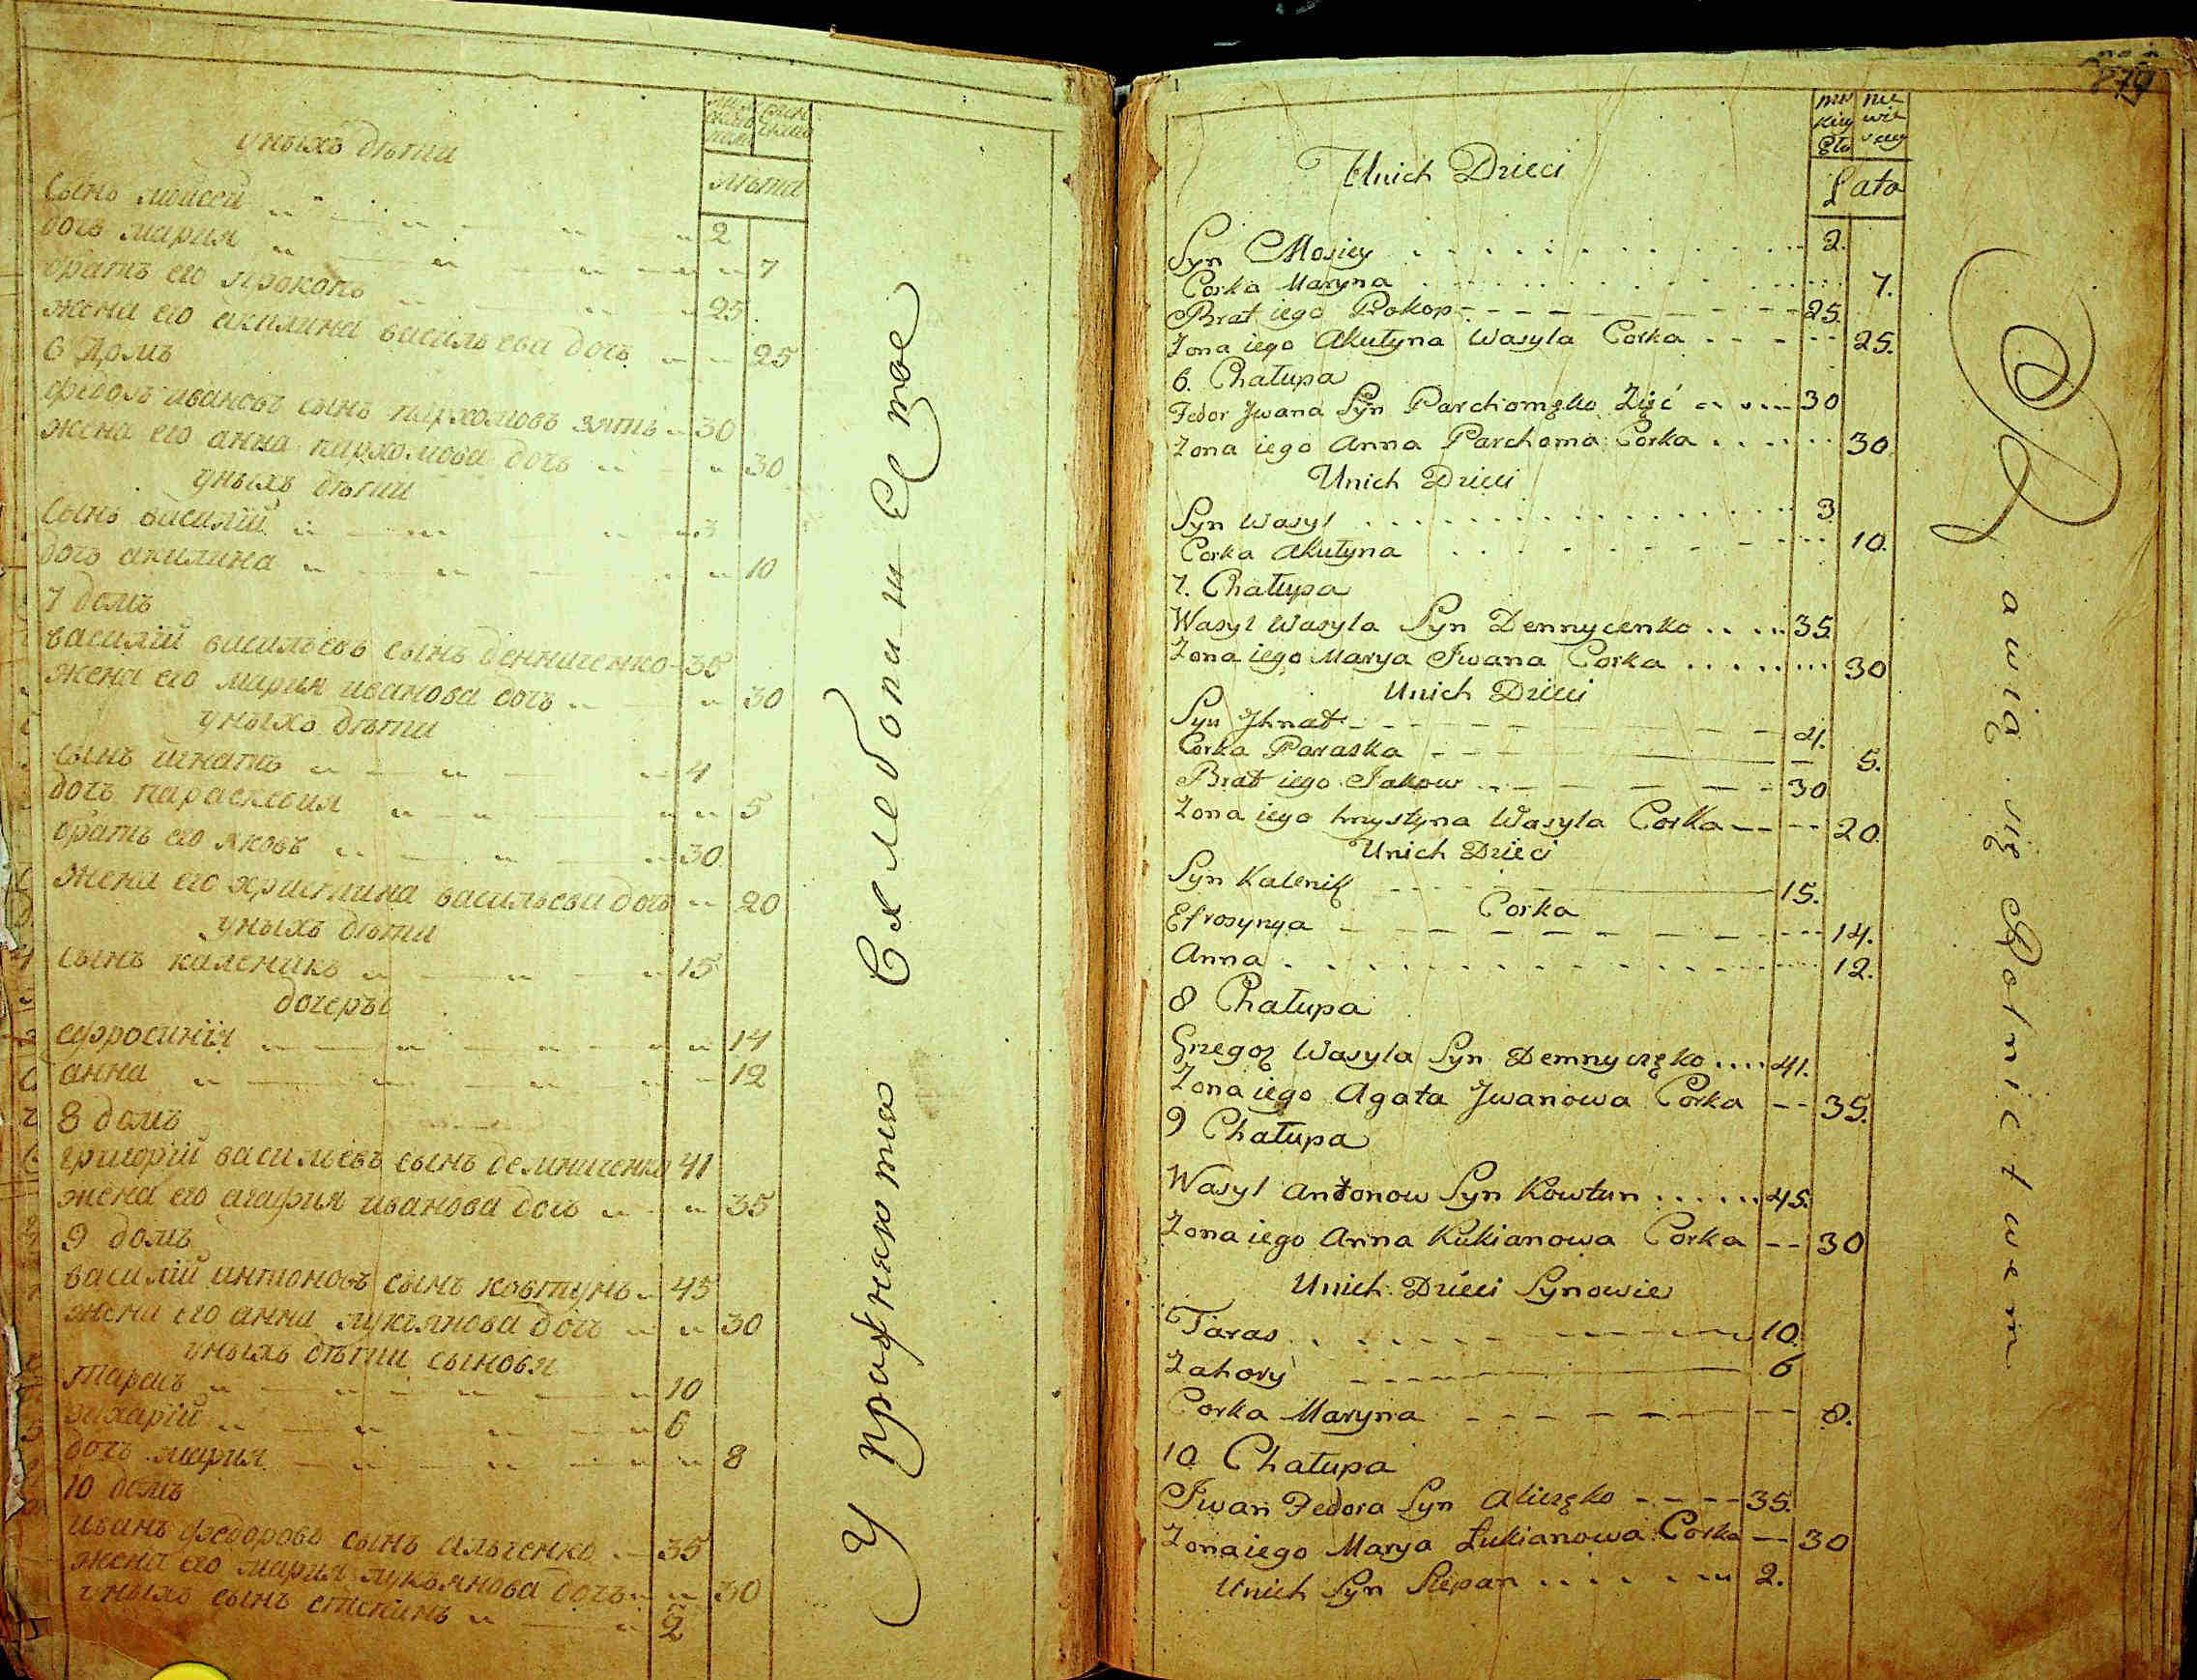 уныхъ дѣти
лѣта
сынъ мойсей 2
дочь мария 7
братъ его прокопъ 25
жена его акилина васильева дочь 25
6 домъ
федоръ ивановъ сынъ пархомовъ зять 30
жена его анна пархомова дочь 30
уныхъ дѣти
сынъ василій 3
дочь акилина 10
7 домъ
василій васильевъ сынъ денниченко 35
жена его мария иванова дочь 30
уныхъ дѣти
сынъ игнатъ 4
дочь параскевия 5
братъ его яковъ 30
жена его христина васильева дочь 20
уныхъ дѣти
сынъ каленикъ 15
дочеры
ефросиния 14
анна 12
8 домъ
григорій васильевъ сынъ демниченко 41
жена его агафия иванова дочь 35
9 домъ
василій антоновъ сынъ ковтунъ 45
жена его анна лукъянова дочь 30
уныхъ дѣти сыновя
тарасъ 10
захарій 6
дочь мария 8
10 домъ
иванъ федоровъ сынъ альченко 35
жена его мария лукъянова дочь 30
уныхъ сынъ степанъ 2
Упражняются Хлебопашеством
Unich Dzieci
Lata
Syn Mosiey 2.
Corka Maryna 7.
Brat iego Prokop 25.
Zona iego Akulyna Wasyla Corka 25.
6. Chałupa
Fedor Jwana Syn Parchomęko Zięć 30
Zona iego Anna Parchoma Corka 30
Unich Dzieci
Syn Wasyl 3
Corka Akulyna 10.
7. Chałupa
Wasyl Wasyla Syn Dennycenko 35.
Zona iego Marya Jwana Corka 30
Unich Dzieci
Syn Jhnat 4.
Corka Paraska 5.
Brat iego Jakow 30
Zona iego hrystyna Wasyla Corka 20.
Unich Dzieci
Syn Kalenik 15.
Corka
Efrosynya 14.
Anna 12.
8 Chałupa
Grzegoz Wasyla Syn Demnyczęko 41.
Zona iego Agata Jwanowa Corka 35.
9 Chałupa
Wasyl Antonow Syn Kowtun 45.
Zona iego Anna Kukianowa Corka 30
Unich Dzieci Synowie
Taras 10.
Zahory 6
Corka Maryna 8.
10 Chałupa
Jwan Fedora Syn Aliczęko 35.
Zona iego Marya Lukianowa Corka 30
Unich Syn Stepan 2.
Bawią się Rolnictwem